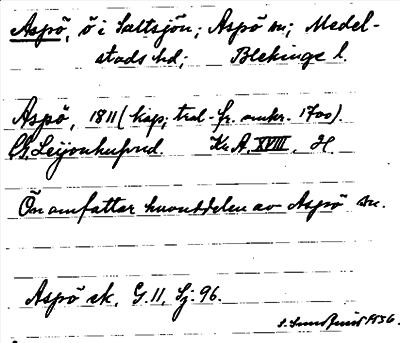 Aspö, ö i Saltsjön; Aspö sn; Medel-
stads hd; Blekinge l.
Aspö, 1811 (kop; trol. fr. omkr. 1700).
Leijonhufvud Kr. A. XVIII. H.
Ön omfattar huvuddelen av Aspö sn.
Aspö ek. G. 11, Sj: 96.
1936.